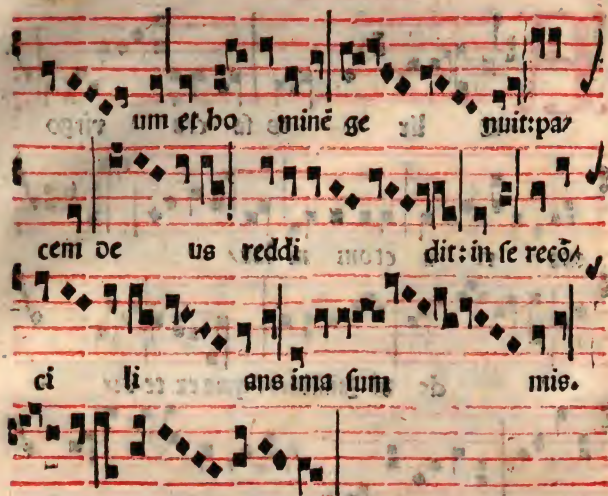 um et ho minē ge nuit: pa⸗
cem de us reddi dit: in se recō⸗
ci li ans ima sum mis.